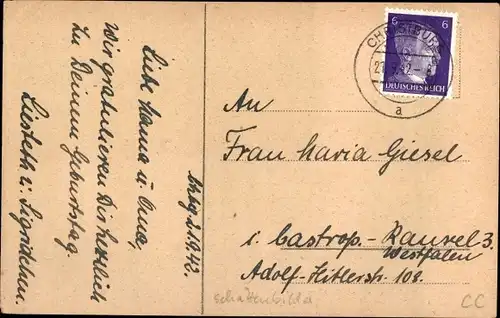 Liebe Mama u. Oma,
Wir gratulieren Dir herzlich
zu Deinem Geburtstag.
Liesbeth u. Sigridchen.
2.10.42.
6 6
DEUTSCHES REICH
a
An
Frau Maria Giesel
i. Castrop-Rauxel 3.
Westfalen
Adolf-Hitlerstr. 108.
Schattenbilder
CC